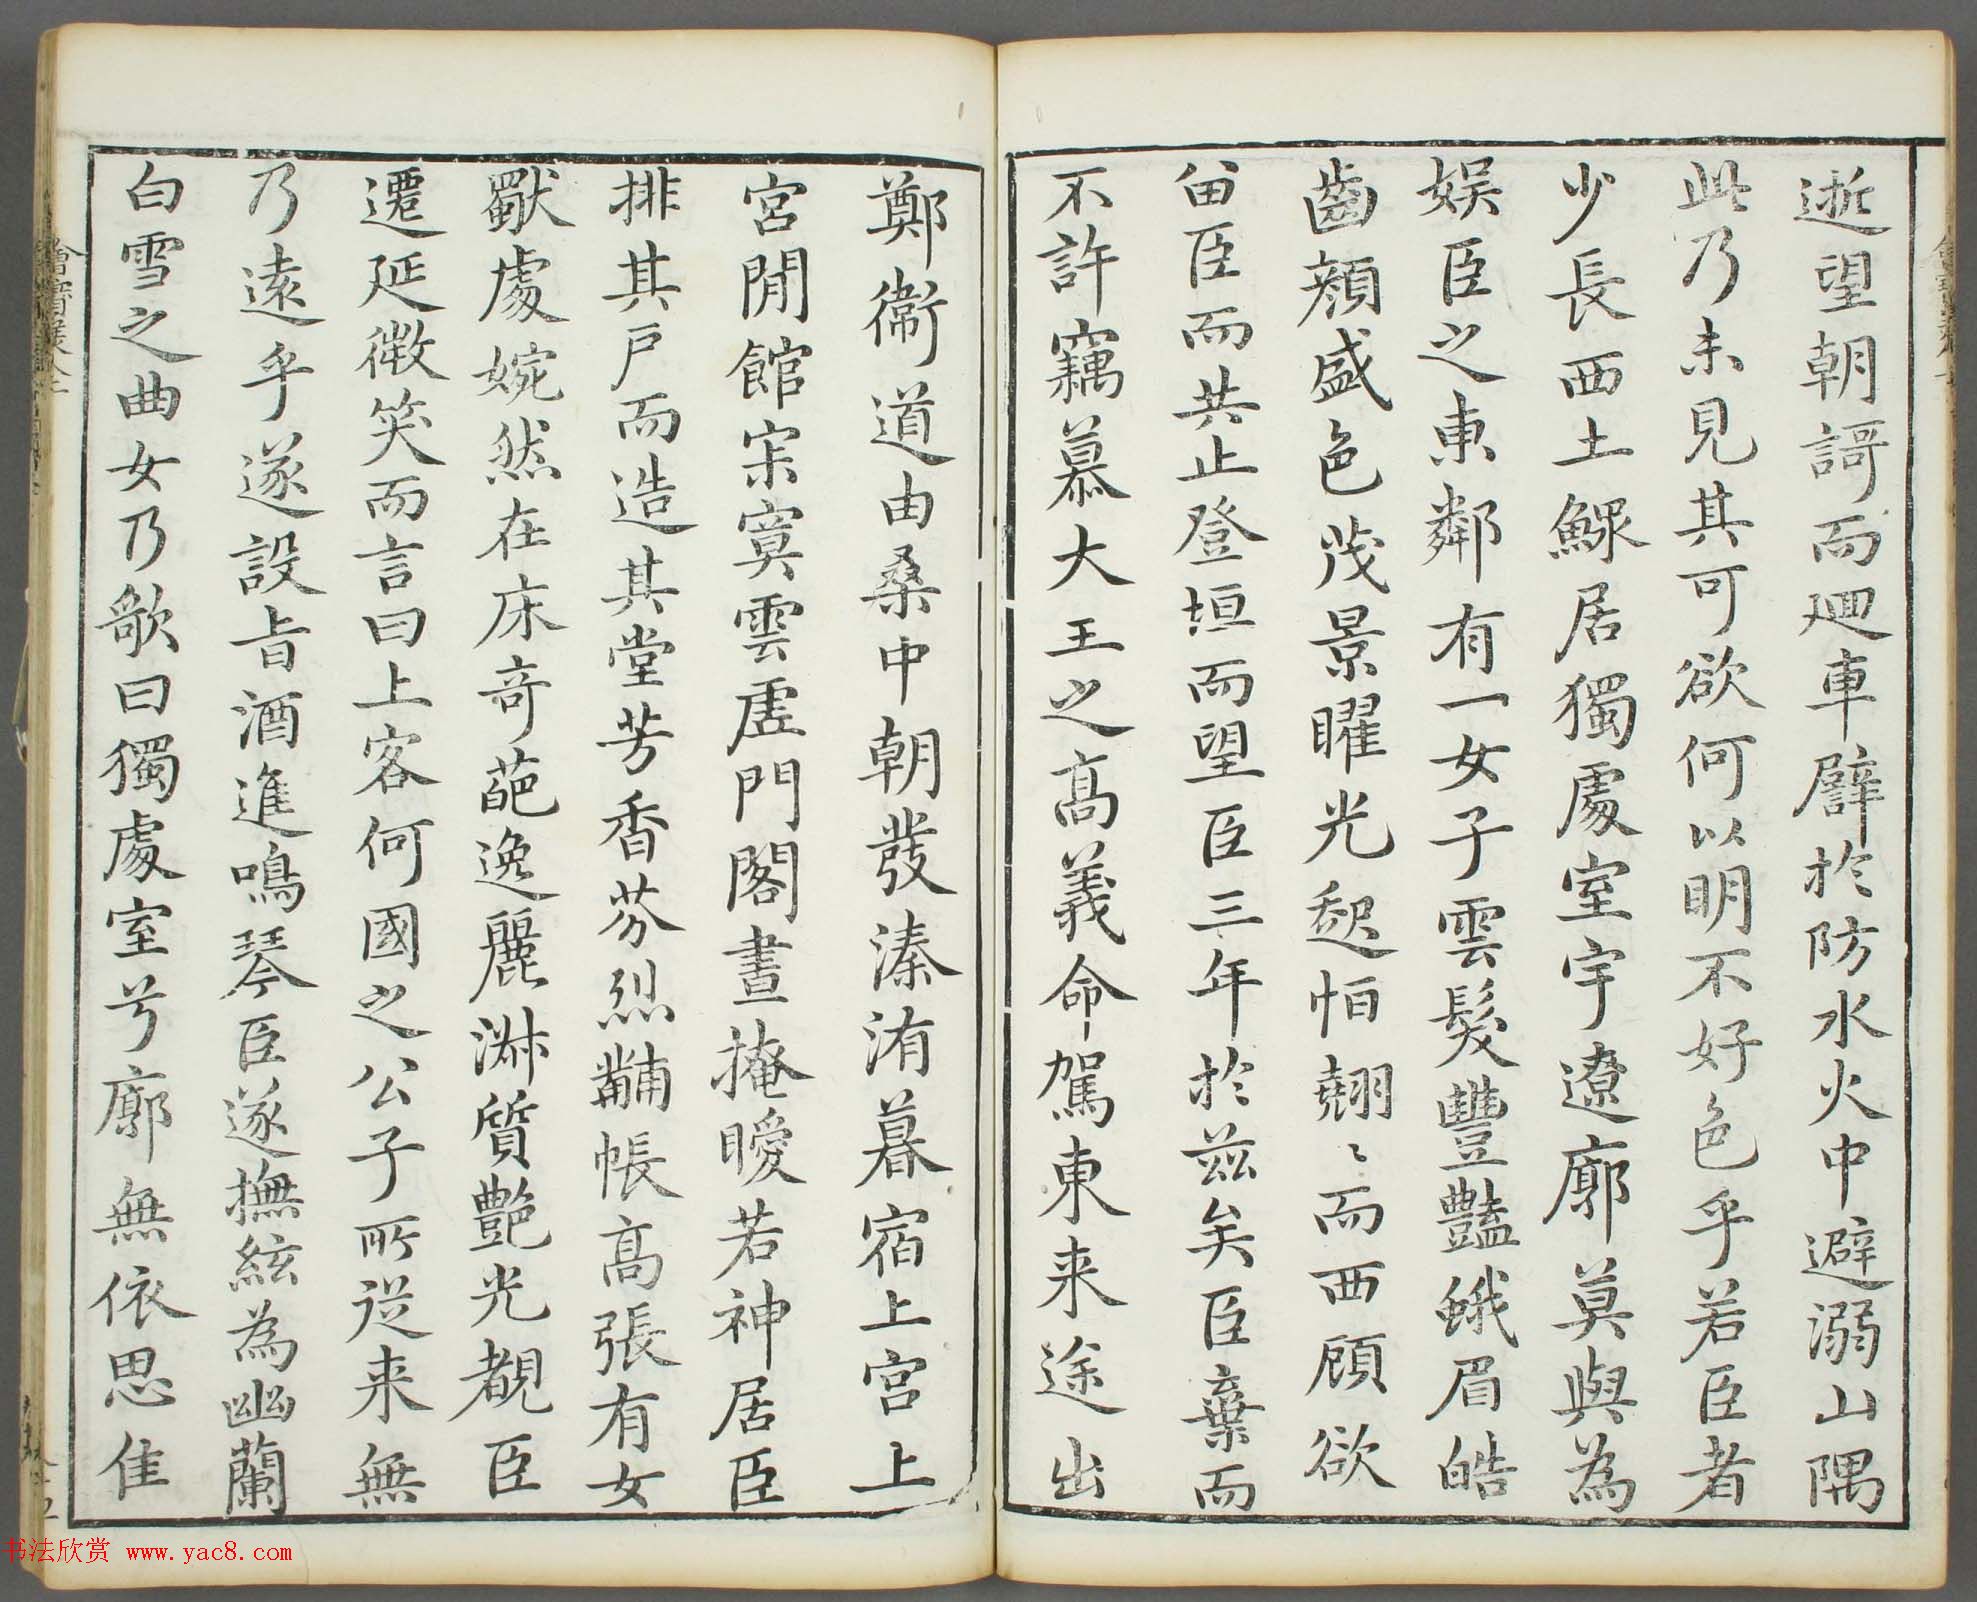 逝望朝謌而廻車辟於防水火中避溺山隅
此乃未見其可欲何以明不好色乎若臣者
少長西土鰥居獨處室宇遼廓莫與為
娛臣之東鄰有一女子雲髮豐豔蛾眉皓
齒顏盛色茂景曜光起恒翹〻而西顧欲
留臣而共止登垣而望臣三年於茲矣臣棄而
不許竊慕大王之高義命駕東来途出
鄭衞道由桑中朝發溱洧暮宿上宮上
宮閒館宋寞雲虛門閣晝掩曖若神居臣
排其戶而造其堂芳香芬烈黼帳高張有女
獨處婉然在床奇葩逸麗淋質艶光覩臣
遷延微笑而言曰上客何國之公子所從来無
乃遠乎遂設旨酒進鳴琴臣遂撫絃為幽蘭
白雪之曲女乃歌曰獨處室兮廓無依思佳
书法欣赏 www.yac8.com